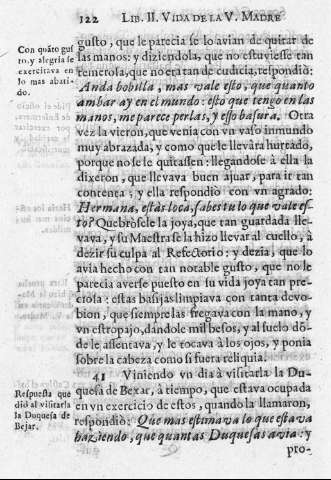 122 LIB. II. VIDA DE LA V. MADRE
Con quãto gus
to, y alegria se
exercitava en
lo mas abati-
do.
gusto, que le parecia se lo avian de quitar de
las manos: y diziendola, que no estuviesse tan
temerosa, que no era tan de cudicia, respondiò:
Anda bobilla, mas vale esto, que quanto
ambar ay en el mundo: esto que tengo en las
manos, me parece perlas, y esso basura. Otra
vez la vieron, que venia con vn vaso inmundo
muy abrazada, y como que le llevàra hurtado,
porque no se le quitassen: llegandose à ella la
dixeron, que llevava buen ajuar, para ir tan
contenta; y ella respondiò con vn agrado:
Hermana, estàs loca, sabes tu lo que vale es-
to? Quebròsele la joya, que tan guardada lle-
vava, y su Maestra se la hizo llevar al cuello, à
dezir su culpa al Refectorio; y dezia, que lo
avia hecho con tan notable gusto, que no le
parecia averse puesto en su vida joya tan pre-
ciosa: estas basijas limpiava con tanta devo-
cion, que siempre las fregava con la mano, y
vn estropajo, dandole mil besos, y al suelo dõ-
de le assentava, y le tocava à los ojos, y ponia
sobre la cabeza como si fuera reliquia.
41 Viniendo vn dia à visitarla la Du-
Respuesta que
diò al visitarla
la Duquesa de
Bejar.
quesa de Bexar, à tiempo, que estava ocupada
en vn exercicio de estos, quando la llamaron,
respondiò: Que mas estimava lo que estava
haziendo, que quantas Duquesas avia: y
pro-